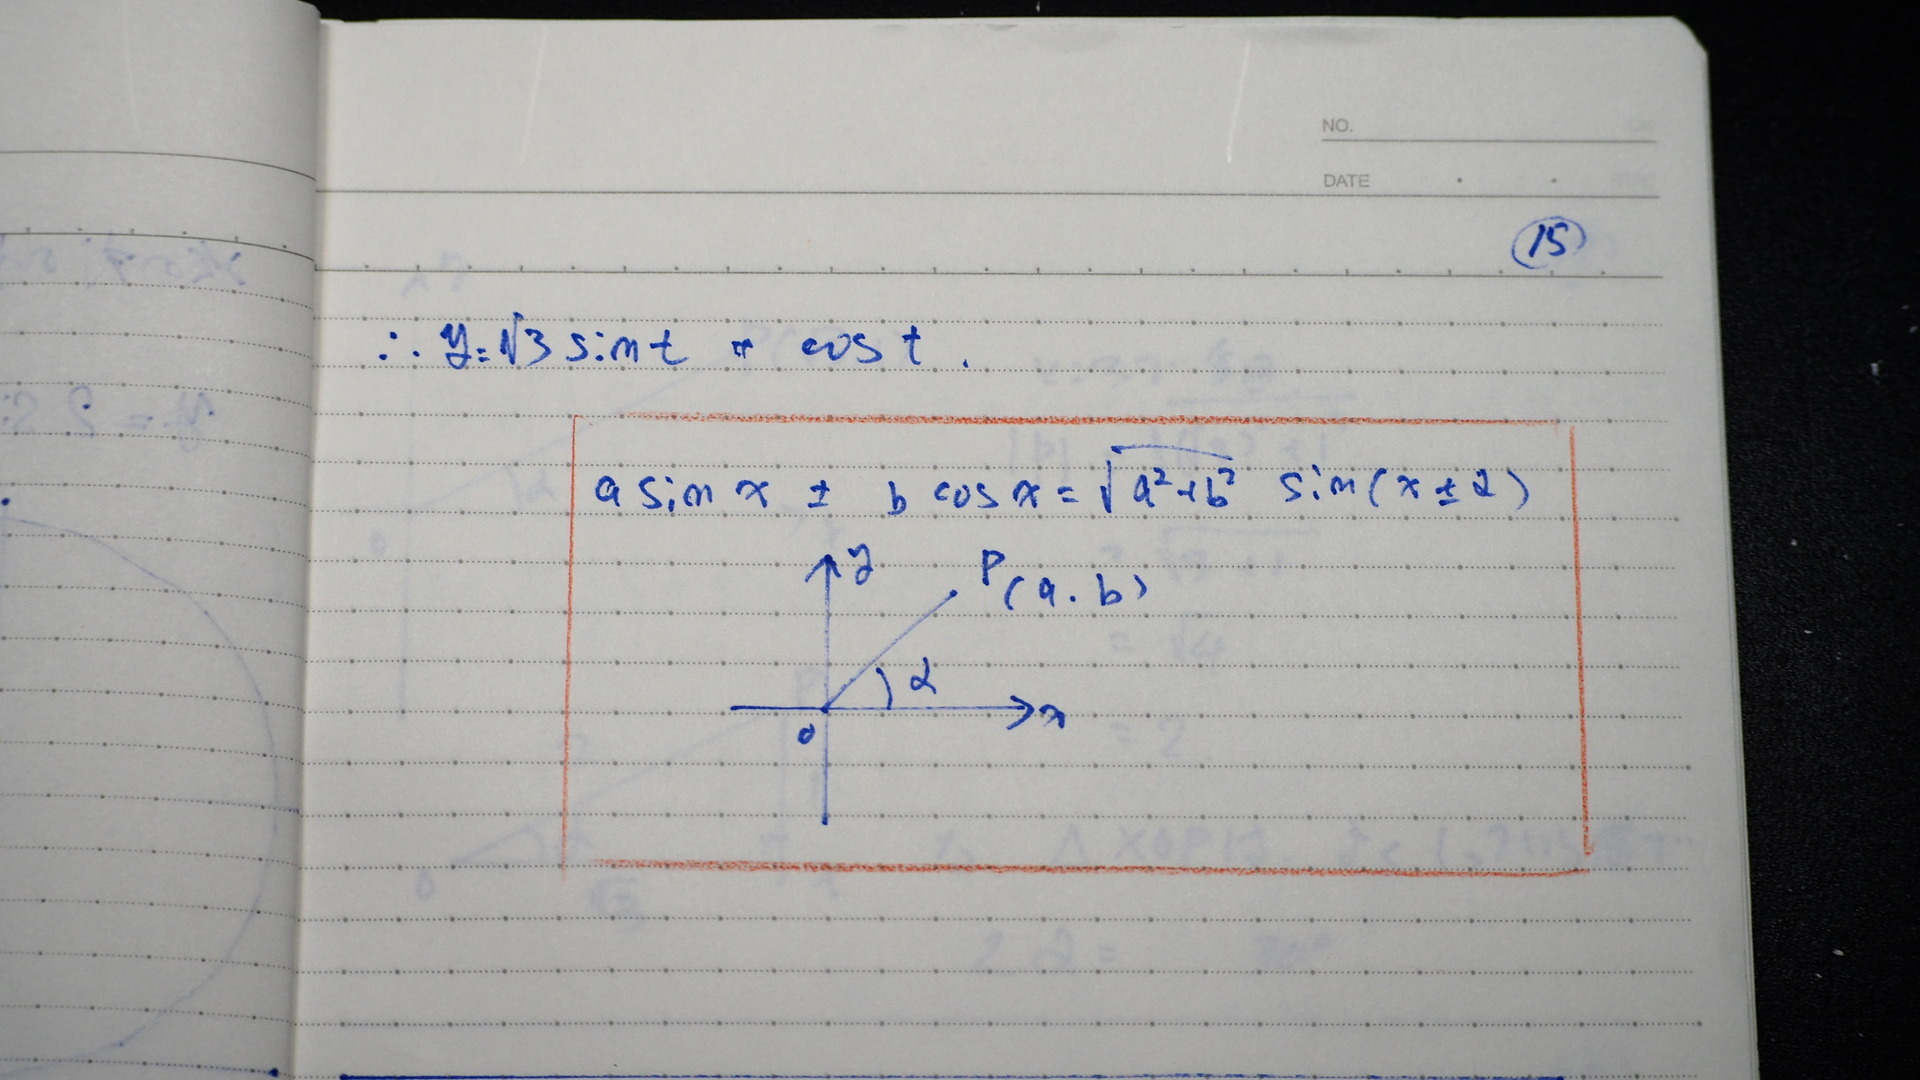 NO.
DATE
15
∴ y=√3 sin t + cos t.
a sin x ± b cos x = √a²+b² sin(x±α)
y
P(a.b)
α
x
0